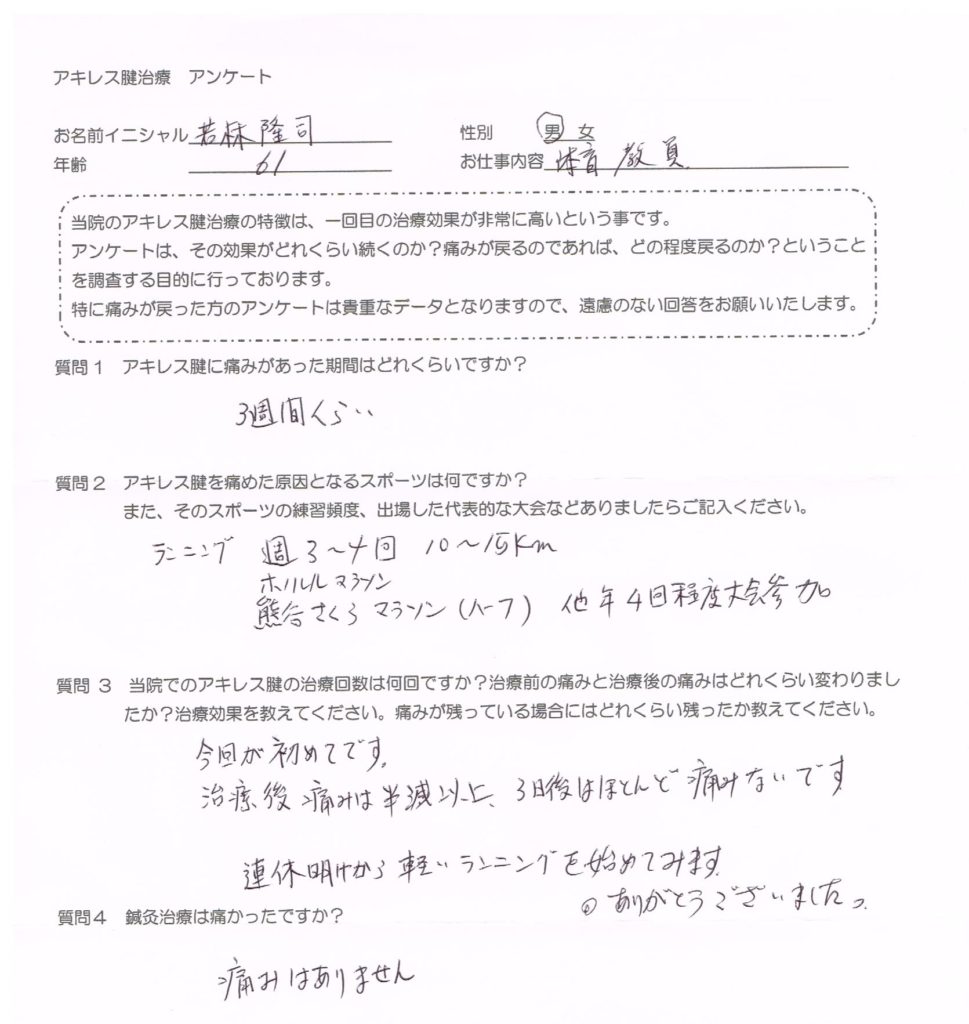 アキレス腱治療 アンケート
お名前イニシャル 若林 隆司 性別 男 女
年齢 61 お仕事内容 体育 教員
当院のアキレス腱治療の特徴は、一回目の治療効果が非常に高いという事です。
アンケートは、その効果がどれくらい続くのか？痛みが戻るのであれば、どの程度戻るのか？ということ
を調査する目的に行っております。
特に痛みが戻った方のアンケートは貴重なデータとなりますので、遠慮のない回答をお願いいたします。
質問１ アキレス腱に痛みがあった期間はどれくらいですか？
3週間くらい
質問２ アキレス腱を痛めた原因となるスポーツは何ですか？
また、そのスポーツの練習頻度、出場した代表的な大会などありましたらご記入ください。
ランニング 週3〜4回 10〜15Km
ホノルルマラソン
熊谷さくらマラソン(ハーフ) 他年4回程度大会参加
質問 ３ 当院でのアキレス腱の治療回数は何回ですか？治療前の痛みと治療後の痛みはどれくらい変わりまし
たか？治療効果を教えてください。痛みが残っている場合にはどれくらい残ったか教えてください。
今回が初めてです。
治療後 痛みは半減以上、3日後はほとんど痛みないです
連休明けから軽いランニングを始めてみます
ありがとうございました。
質問４ 鍼灸治療は痛かったですか？
痛みはありません